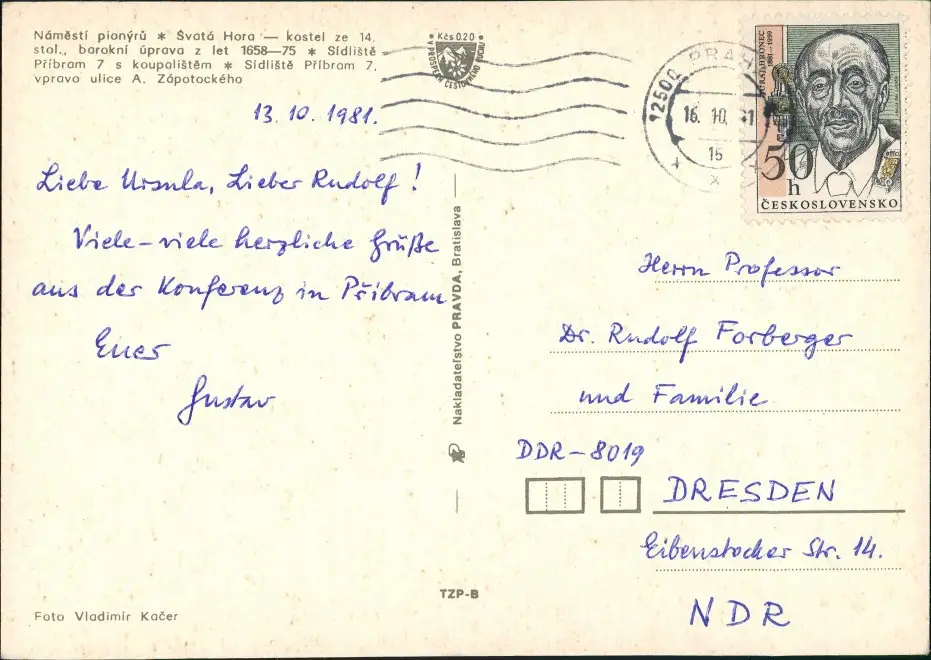 Náměstí pionýrů * Svatá Hora — kostel ze 14.
stol., barokní úprava z let 1658—75 * Sídliště
Příbram 7 s koupalištěm * Sídliště Příbram 7,
vpravo ulice A. Zápotockého
13. 10. 1981.
Liebe Ursula, Lieber Rudolf!
Viele-viele herzliche Grüße
aus der Konferenz in Příbram
Euer
Gustav
Foto Vladimír Kačer
Nakladateľstvo PRAVDA, Bratislava
TZP-B
Kčs 0.20
12500 PRAHA
16. 10. 81
15
50
h
ČESKOSLOVENSKO
Herrn Professor
Dr. Rudolf Forberger
und Familie
DDR-8019
DRESDEN
Eibenstocker Str. 14.
NDR